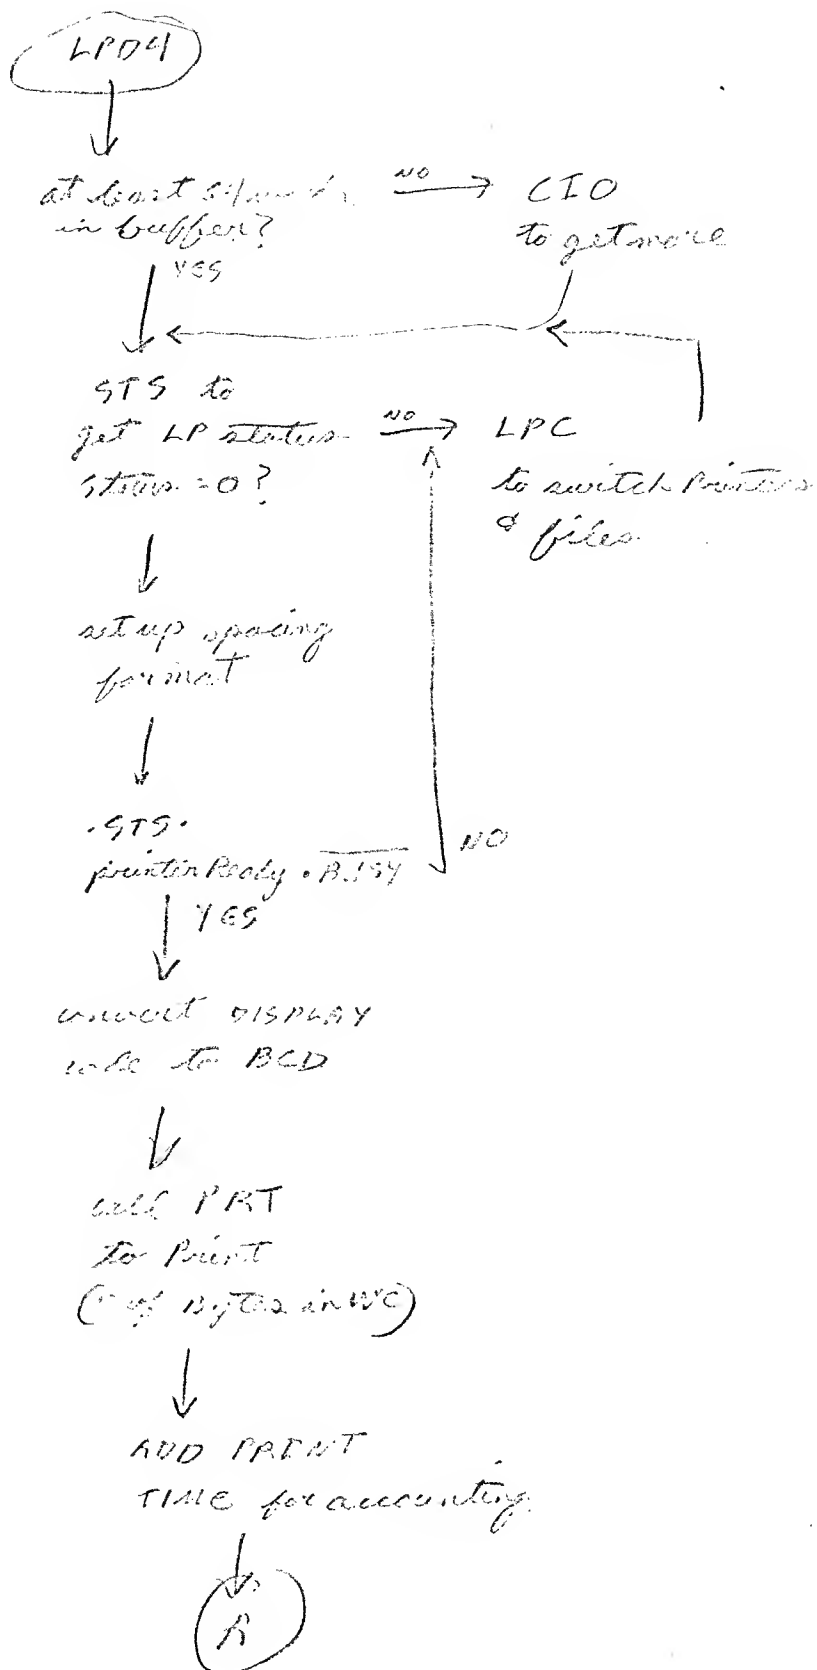 LPD4
at least words NO CIO
in buffer? to get more
YES
STS to
get LP status NO LPC
status = 0? to switch Printers
& files
set up spacing
format
.STS.
printer Ready . BUSY NO
YES
convert DISPLAY
code to BCD
call PRT
to Print
(# of Bytes in WC)
ADD PRINT
TIME for accounting